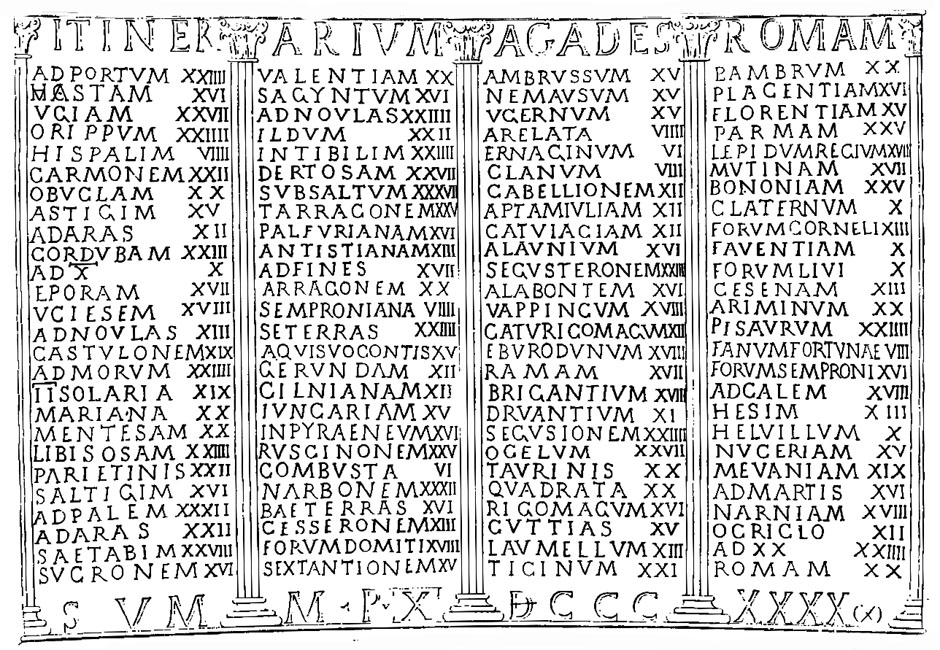 ITINERARIVM AGADES ROMAM
ADPORTVM XXIIII
HASTAM XVI
VGIAM XXVII
ORIPPVM XXIIII
HISPALIM VIIII
CARMONEM XXII
OBVCLAM XX
ASTIGIM XV
ADARAS XII
CORDVBAM XXIII
AD X̅ X
EPORAM XVII
VCIESEM XVIII
ADNOVLAS XIII
CASTVLONEM XIX
ADMORVM XXIIII
II̅SOLARIA XIX
MARIANA XX
MENTESAM XX
LIBISOSAM XXIIII
PARIETINIS XXII
SALTIGIM XVI
ADPALEM XXXII
ADARAS XXII
SAETABIM XXVIII
SVCRONEM XVI
VALENTIAM XX
SAGYNTVM XVI
ADNOVLAS XXIIII
ILDVM XXII
INTIBILIM XXIIII
DERTOSAM XXVII
SVBSALTVM XXXVII
TARRACONEM XXV
PALFVRIANAM XVI
ANTISTIANAM XIII
ADFINES XVII
ARRAGONEM XX
SEMPRONIANA VIIII
SETERRAS XXIIII
AQVISVOCONTIS XV
GERVNDAM XII
CILNIANAM XII
IVNCARIAM XV
INPYRAENEVM XVI
RVSCINONEM XXV
COMBVSTA VI
NARBONEM XXXII
BAETERRAS XVI
CESSERONEM XIII
FORVMDOMITI XVIII
SEXTANTIONEM XV
AMBRVSSVM XV
NEMAVSVM XV
VGERNVM XV
ARELATA VIIII
ERNAGINVM VI
CLANVM VIII
CABELLIONEM XII
APTAMIVLIAM XII
CATVIACIAM XII
ALAVNIVM XVI
SEGVSTERONEM XXIIII
ALABONTEM XVI
VAPPINCVM XVIII
CATVRIGOMAGVM XII
EBVRODVNVM XVIII
RAMAM XVII
BRIGANTIVM XVIII
DRVANTIVM XI
SEGVSIONEM XXIIII
OCELVM XXVII
TAVRINIS XX
QVADRATA XX
RIGOMAGVM XVI
CVTTIAS XV
LAVMELLVM XIII
TICINVM XXI
BAMBRVM XX
PLACENTIAM XVI
FLORENTIAM XV
PARMAM XXV
LEPIDVMREGIVM XVIII
MVTINAM XVII
BONONIAM XXV
CLATERNVM X
FORVMCORNELI XIII
FAVENTIAM X
FORVMLIVI X
CESENAM XIII
ARIMINVM XX
PISAVRVM XXIIII
FANVMFORTVNAE VIII
FORVMSEMPRONI XVI
ADCALEM XVIII
HESIM XIII
HELVILLVM X
NVCERIAM XV
MEVANIAM XIX
ADMARTIS XVI
NARNIAM XVIII
OCRICLO XII
AD XX XXIIII
ROMAM XX
SVM M·P·X̅ DCCC XXXX(X)